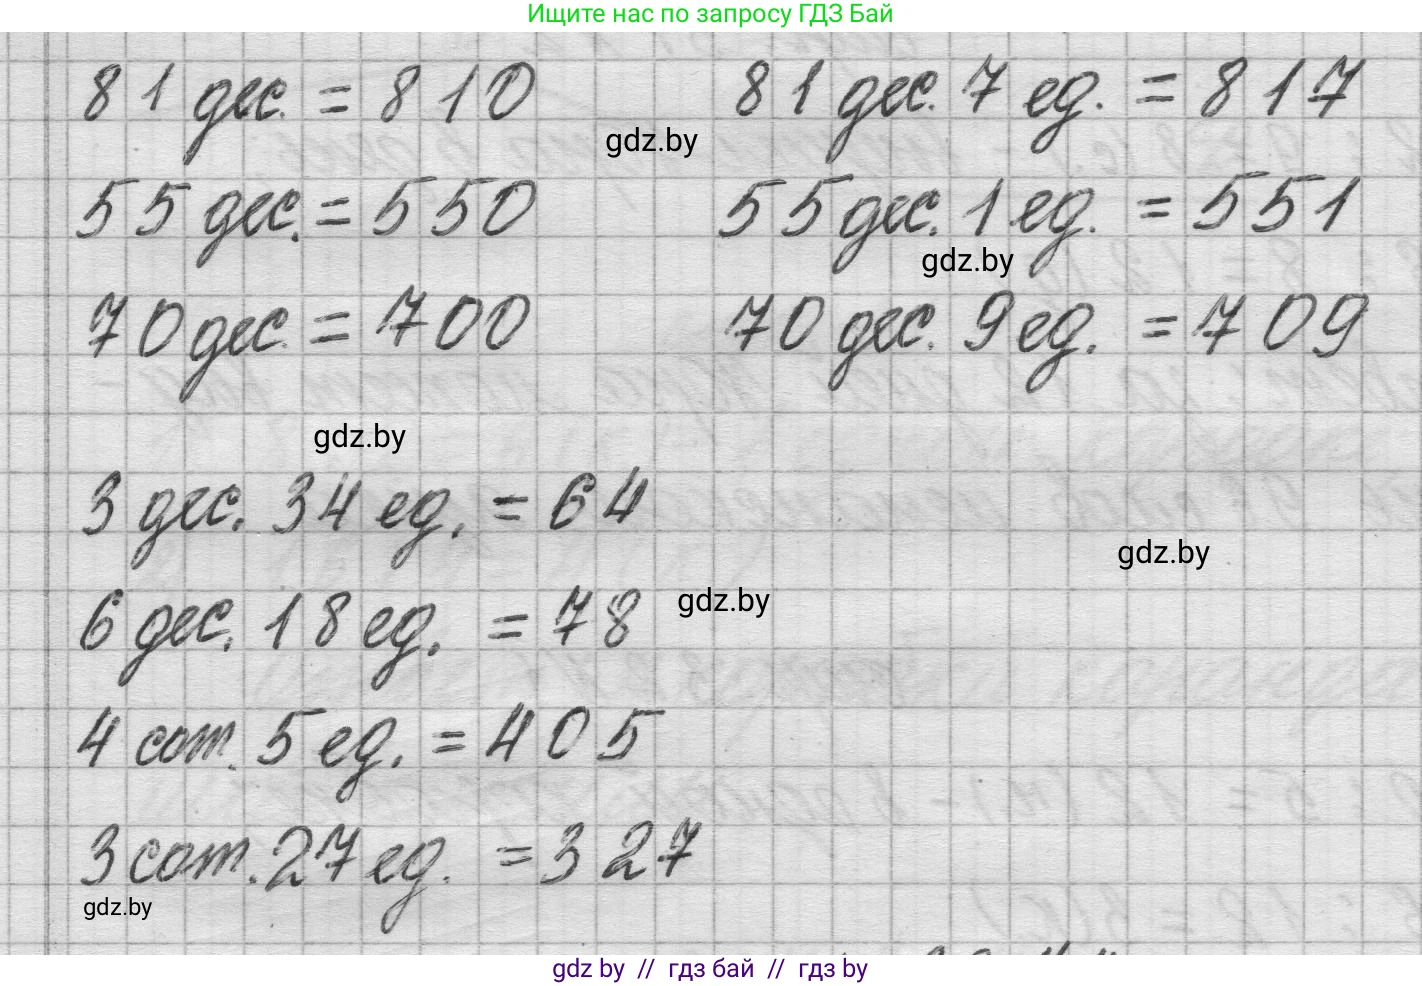 Ищите нас по запросу ГДЗ Бай
81 дес. = 810 81 дес. 7 ед. = 817
gdz.by
55 дес. = 550 55 дес. 1 ед. = 551
gdz.by
70 дес. = 700 70 дес. 9 ед. = 709
gdz.by
3 дес. 34 ед. = 64
gdz.by
6 дес. 18 ед. = 78
gdz.by
4 сот. 5 ед. = 405
3 сот. 27 ед. = 327
gdz.by
gdz by // гдз бай // гдз by